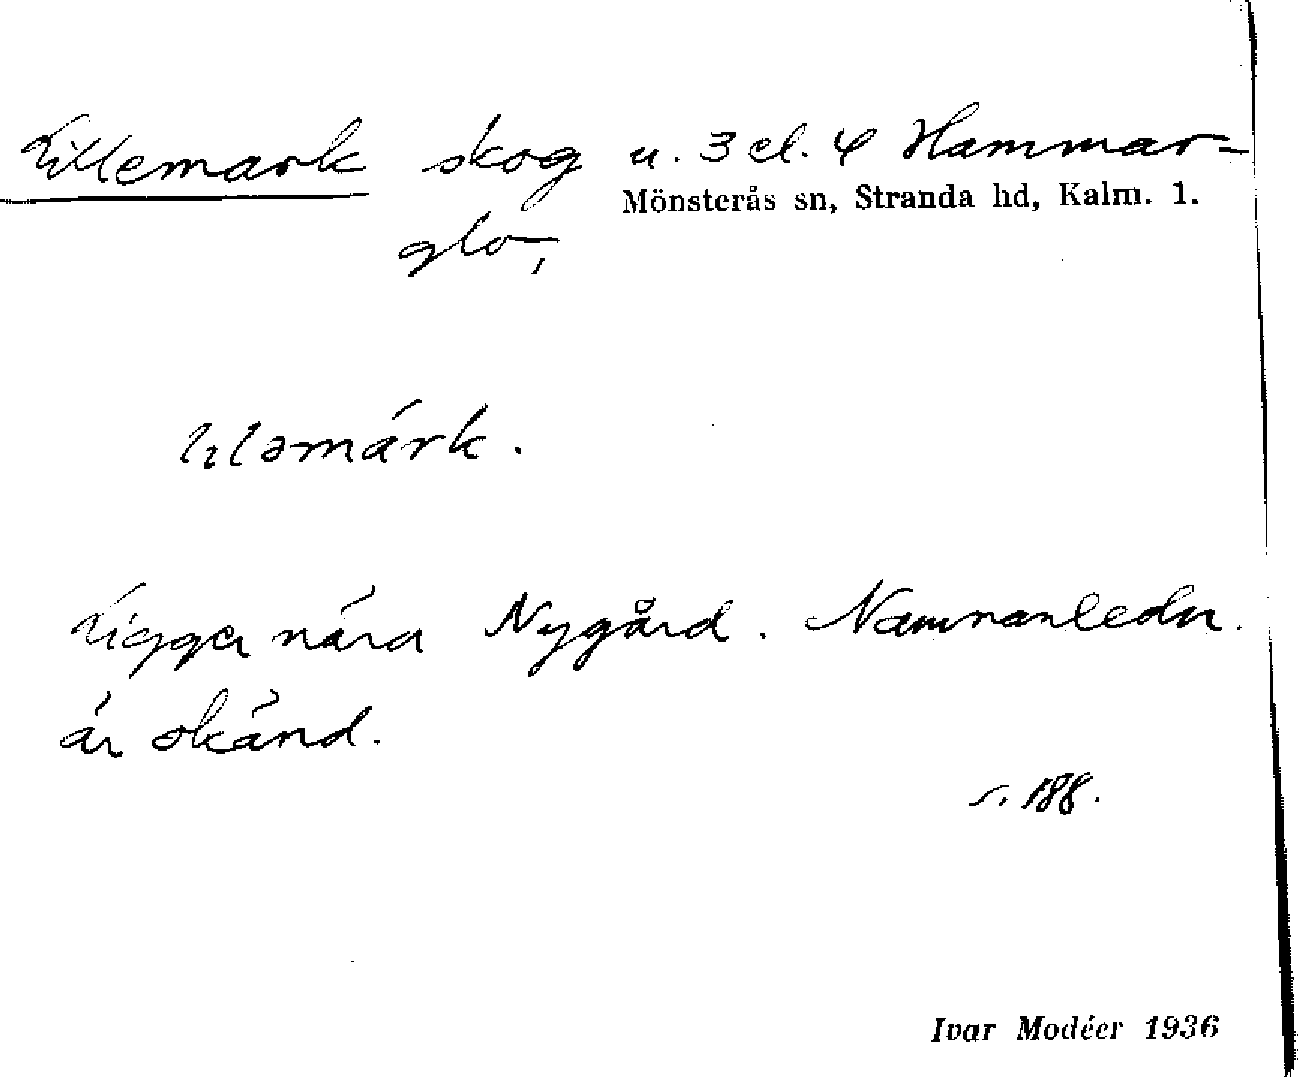 Lillemark skog u. 3 el. 4 Hammar-
Mönsterås sn, Stranda hd, Kalm. l.
glo,
lıləmárk.
Ligger nära Nygård. Namnanledn.
är okänd.
s. 188.
Ivar Modéer 1936